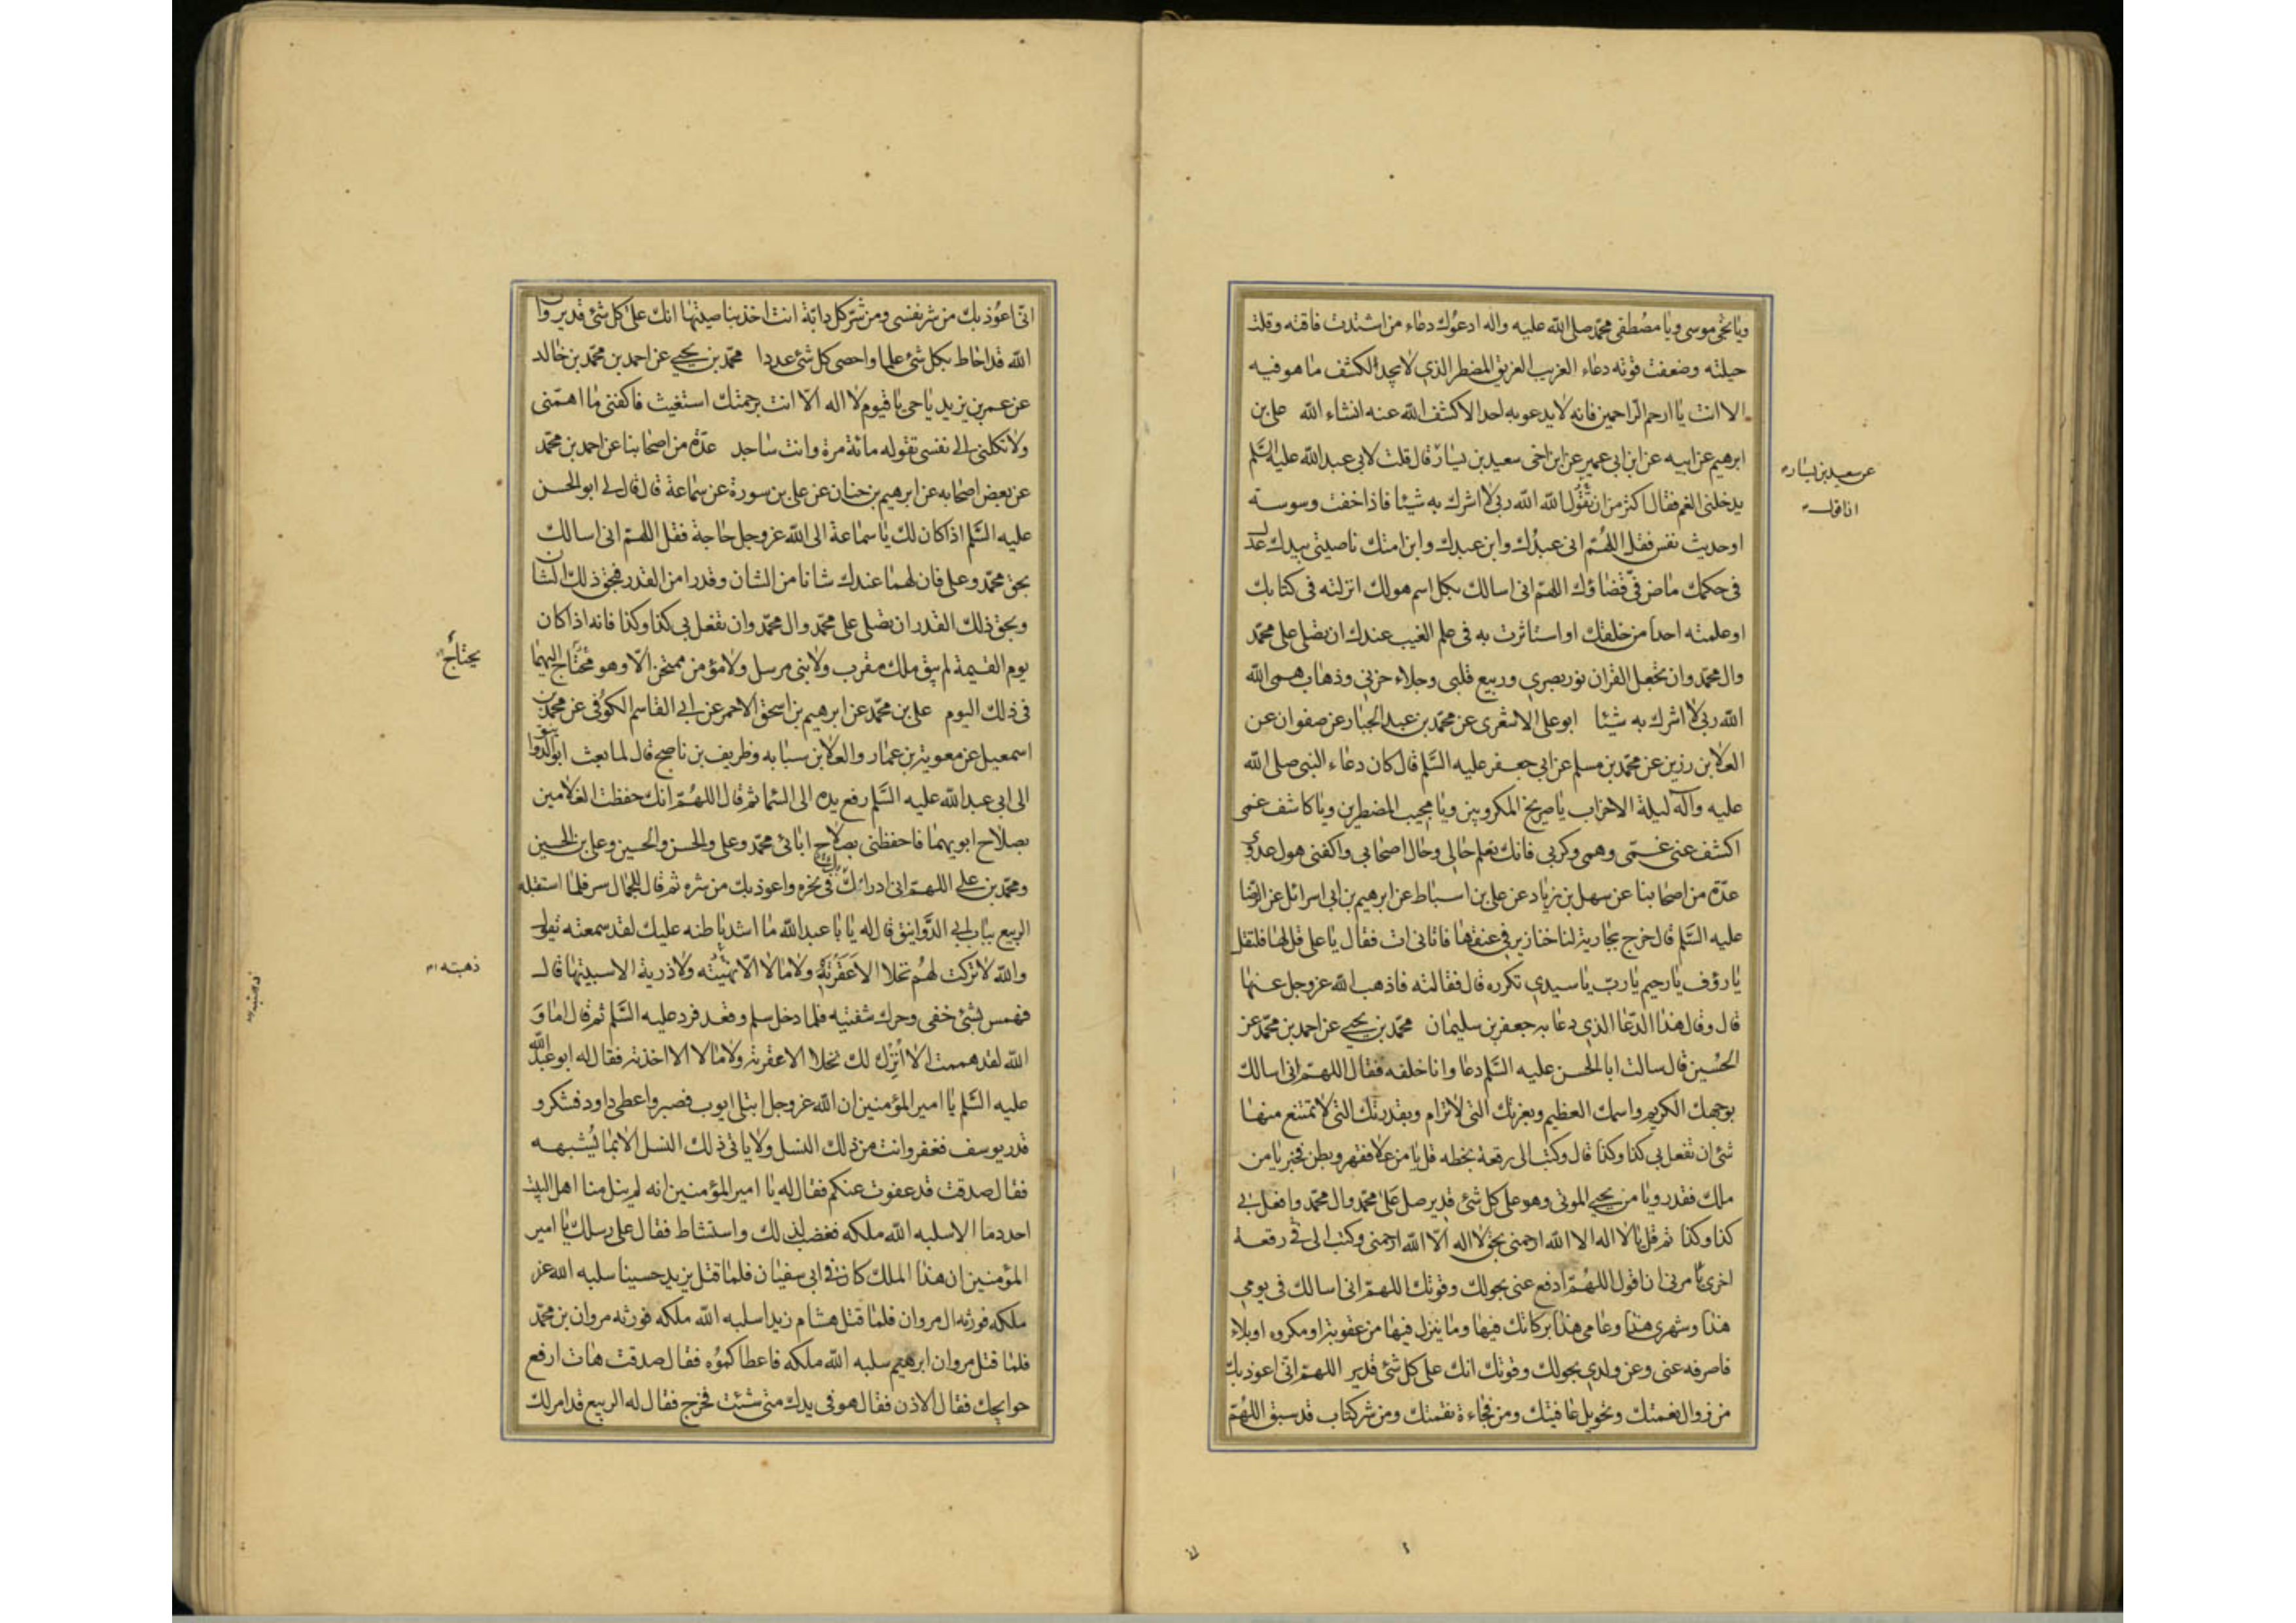 ويا نجي موسى ويا مصطفى محمد صلى الله عليه واله ادعوك دعاء من اشتدت فاقته وقلت
حيلته وضعفت قوته دعاء الغريب الغريق المضطر الذي لا يجد لكشف ما هو فيه
الا انت يا ارحم الراحمين فانه لا يدعو به احد الا كشف الله عنه انشاء الله علي بن
ابرهيم عن ابيه عن ابن ابي عمير عن ابن اخي سعيد بن يسار قال قلت لابي عبد الله عليه السلم
عن سعيد بن يسار
يدخلني الغم فقال اكثر من ان تقول الله الله ربي لا اشرك به شيئا فاذا خفت وسوسة
انا اقول
او حديث نفس فقل اللهم اني عبدك وابن عبدك وابن امتك ناصيتي بيدك عدل
في حكمك ماض في قضاؤك اللهم اني اسالك بكل اسم هو لك انزلته في كتابك
او علمته احدا من خلقك او استاثرت به في علم الغيب عندك ان تصلي على محمد
وال محمد وان تجعل القران نور بصري وربيع قلبي وجلاء حزني وذهاب همي الله
الله ربي لا اشرك به شيئا ابو علي الاشعري عن محمد بن عبد الجبار عن صفوان عن
العلا بن رزين عن محمد بن مسلم عن ابي جعفر عليه السلم قال كان دعاء النبي صلى الله
عليه وآله ليلة الاحزاب يا صريخ المكروبين ويا مجيب المضطرين ويا كاشف غمي
اكشف عني غمي وهمي وكربي فانك تعلم حالي وحال اصحابي واكفني هول عدوي
عدة من اصحابنا عن سهل بن زياد عن علي بن اسباط عن ابرهيم بن ابي اسرائل عن الرضا
عليه السلم قال خرج بجارية لنا خنازير في عنقها فاتاني ات فقال يا علي قل لها فلتقل
يا رؤف يا رحيم يا رب يا سيدي تكرره قال فقالته فاذهب الله عز وجل عنها
قال وقال هذا الدعا الذي دعا به جعفر بن سليمان محمد بن يحيى عن احمد بن محمد عن
الحسين قال سالت ابا الحسن عليه السلم دعا وانا خلفه فقال اللهم اني اسالك
بوجهك الكريم واسمك العظيم وبعزتك التي لا ترام وبقدرتك التي لا تمتنع منها
شئ ان تفعل بي كذا وكذا قال وكتب الي رقعة بخطه قل يا من علا فقهر وبطن فخبر يا من
ملك فقدر ويا من يحيي الموتى وهو على كل شئ قدير صل على محمد وال محمد وافعل بي
كذا وكذا ثم قل يا لا اله الا الله ارحمني بحق لا اله الا الله ارحمني وكتب الي في رقعة
اخرى يامرني ان اقول اللهم ادفع عني بحولك وقوتك اللهم اني اسالك في يومي
هذا وشهري هذا وعامي هذا بركاتك فيها وما ينزل فيها من عقوبة او مكروه او بلاء
فاصرفه عني وعن ولدي بحولك وقوتك انك على كل شئ قدير اللهم اني اعوذ بك
من زوال نعمتك وتحويل عافيتك ومن فجاءة نقمتك ومن شر كتاب قد سبق اللهم
اني اعوذ بك من شر نفسي ومن شر كل دابة انت اخذ بناصيتها انك على كل شئ قدير وان
الله قد احاط بكل شئ علما واحصى كل شئ عددا محمد بن يحيى عن احمد بن محمد بن خالد
عن عمر بن يزيد يا حي يا قيوم لا اله الا انت برحمتك استغيث فاكفني ما اهمني
ولا تكلني الى نفسي تقوله مائة مرة وانت ساجد عدة من اصحابنا عن احمد بن محمد
عن بعض اصحابه عن ابرهيم بن حنان عن علي بن سورة عن سماعة قال قال لي ابو الحسن
عليه السلم اذا كان لك يا سماعة الى الله عز وجل حاجة فقل اللهم اني اسالك
بحق محمد وعلي فان لهما عندك شانا من الشان وقدرا من القدر فبحق ذلك الشان
وبحق ذلك القدر ان تصلي على محمد وال محمد وان تفعل بي كذا وكذا فانه اذا كان
يوم القيمة لم يبق ملك مقرب ولا نبي مرسل ولا مؤمن ممتحن الا وهو محتاج اليهما
يحتاج
في ذلك اليوم علي بن محمد عن ابرهيم بن اسحق الاحمر عن ابي القاسم الكوفي عن محمد بن
اسمعيل عن معوية بن عمار والعلا بن سبابه وظريف بن ناصح قال لما بعث ابو الدوانيق
الى ابي عبد الله عليه السلم رفع يده الى السما ثم قال اللهم انك حفظت الغلامين
بصلاح ابويهما فاحفظني بصلاح ابائي محمد وعلي والحسن والحسين وعلي بن الحسين
ومحمد بن علي اللهم اني ادرا بك في نحره واعوذ بك من شره ثم قال للجمال سر فلما استقبله
الربيع بباب ابي الدوانيق قال له يا با عبد الله ما اشد باطنه عليك لقد سمعته يقول
والله لا تركت لهم نخلا الا عقرته ولا مالا الا نهبته ولا ذرية الا سبيتها قال
ذهبته
فهمس بشئ خفي وحرك شفتيه فلما دخل سلم وقعد فرد عليه السلم ثم قال اما و
الله لقد هممت الا اترك لك نخلا الا عقرته ولا مالا الا اخذته فقال له ابو عبد الله
عليه السلم يا امير المؤمنين ان الله عز وجل ابتلى ايوب فصبر واعطى داود فشكر و
قدر يوسف فغفر وانت من ذلك النسل ولا ياتي ذلك النسل الا بما يشبهه
فقال صدقت قد عفوت عنكم فقال له يا امير المؤمنين انه لم ينل منا اهل البيت
احد دما الا سلبه الله ملكه فغضب لذلك واستشاط فقال على رسلك يا امير
المؤمنين ان هذا الملك كان في ابي سفيان فلما قتل يزيد حسينا سلبه الله عز
ملكه فورثه ال مروان فلما قتل هشام زيدا سلبه الله ملكه فورثه مروان بن محمد
فلما قتل مروان ابرهيم سلبه الله ملكه فاعطاكموه فقال صدقت هات ارفع
حوايجك فقال الاذن فقال هو في يدك متى شئت فخرج فقال له الربيع قد امر لك